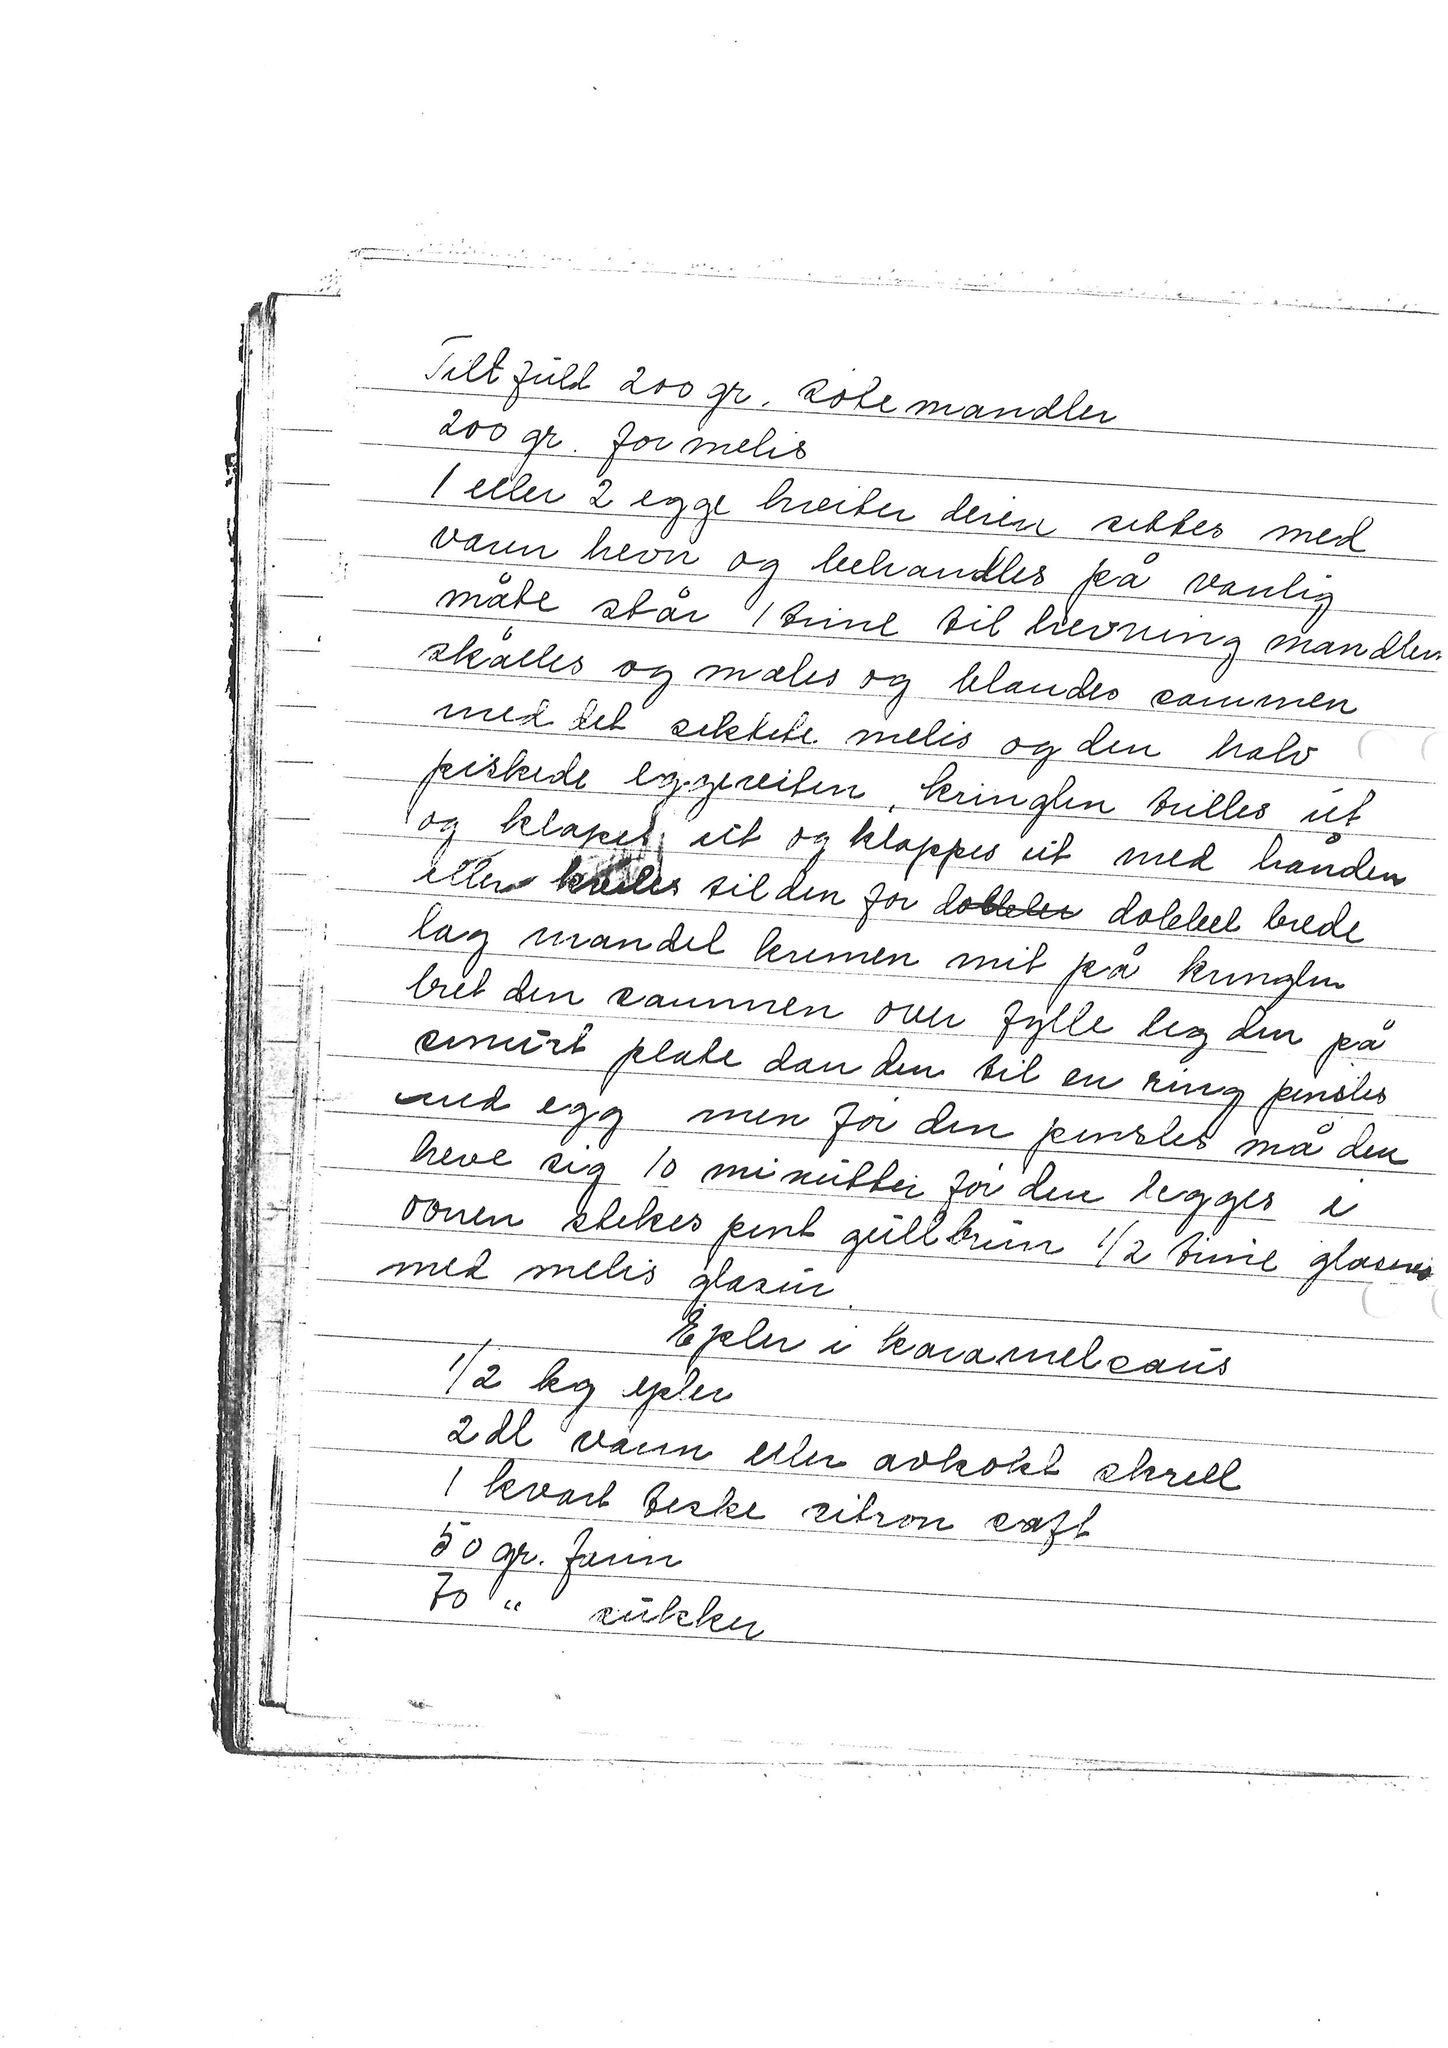 Tilt fuld 200 gr. søte mandler
200 gr. for melis
1 eller 2 egge hveiter deien settes med
varm hevn og behandles på vanlig
måte står 1 time til hevning mandlen
skålles og males og blandes sammen
med det siktete melis og den halv
piskede eggeviten, kringlen trilles ut
og klapes ut og klappes ut med hånden
eller kveles til den før dobbel brede
lag mandel kremen mit på kringlen
bret den sammen over fylle leg den på
smurt plate dan den til en ring pensles
med egg men før den pensles må den
heve sig 10 minutter før den legges i
ovnen stekes pent gullbrun 1/2 time glaseres
med melis glasur.
Epler i karamelsaus
1/2 kg epler
2 dl vann eller avkokt skrell
1 kvart teske sitron saft
50 gr. farin
70 " sukker